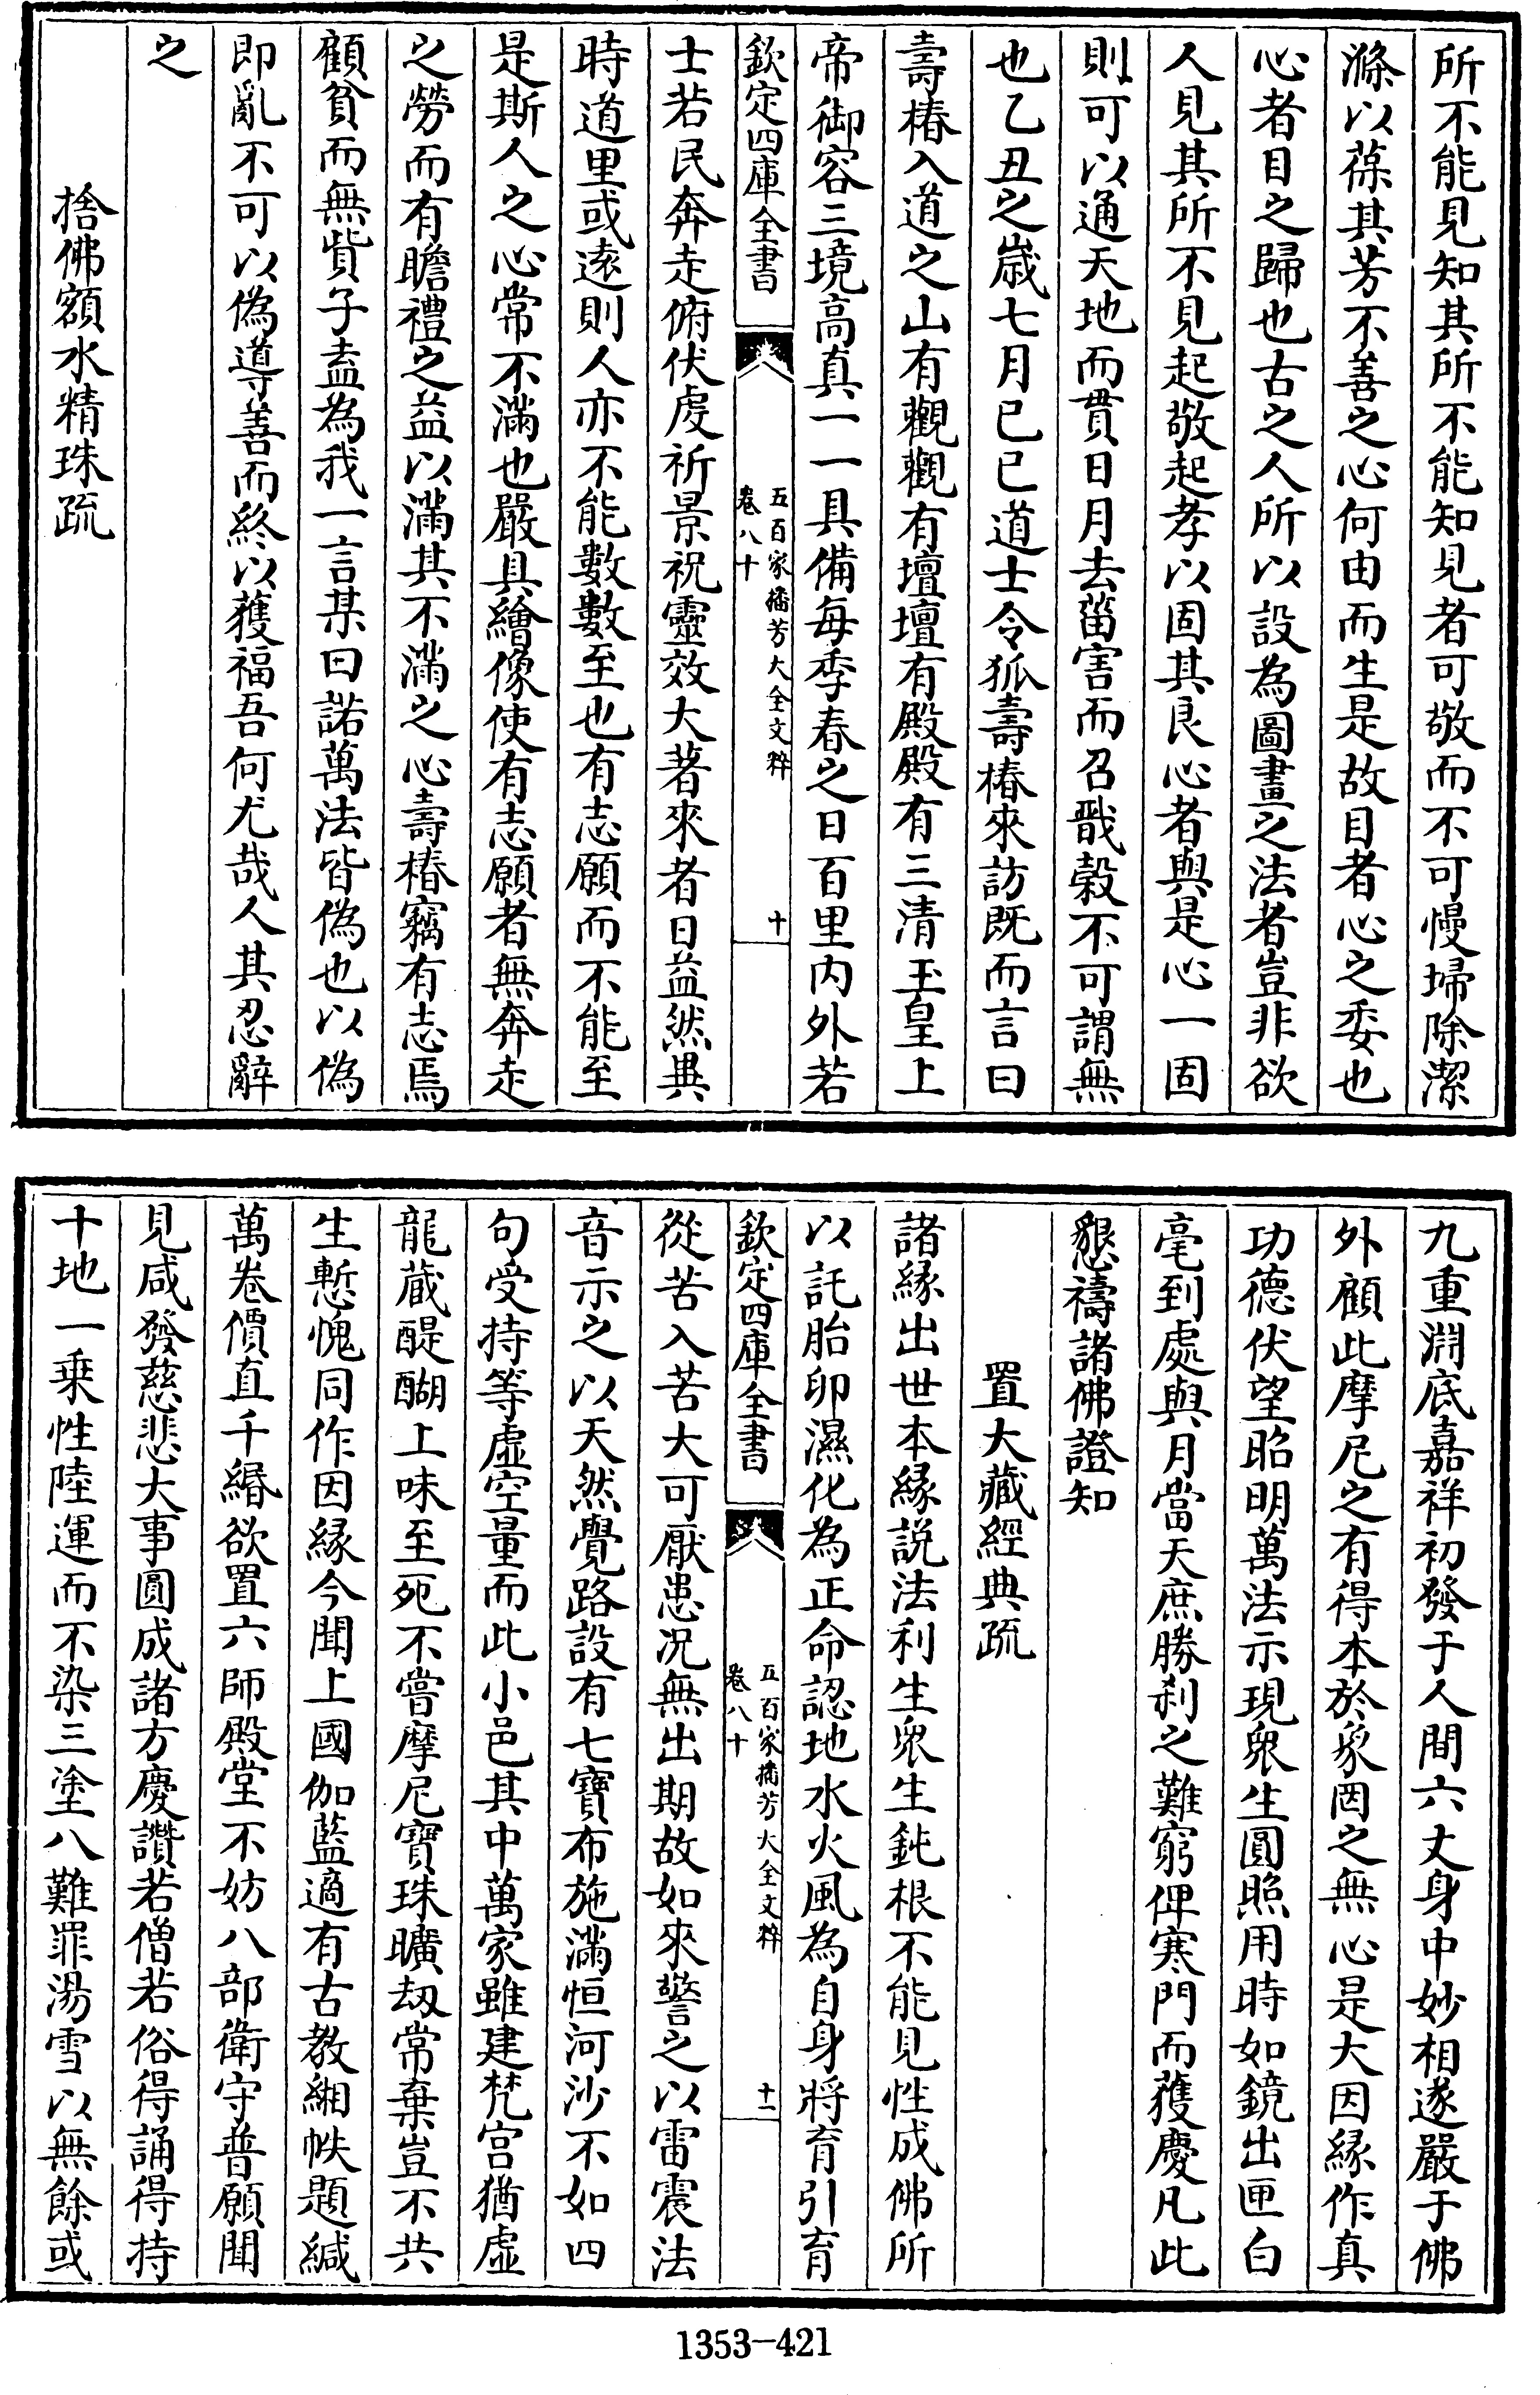 所不能見知其所不能知見者可敬而不可慢埽除潔
滌以葆其芳不善之心何由而生是故目者心之委也
心者目之歸也古之人所以設為圖畫之法者豈非欲
人見其所不見起敬起孝以固其良心者與是心一固
則可以通天地而貫日月去菑害而召戩榖不可謂無
也乙丑之歳七月已巳道士令狐壽椿來訪既而言曰
壽椿入道之山有觀觀有壇壇有殿殿有三清玉皇上
帝御容三境高真一一具備每季春之日百里内外若
欽定四庫全書
五百家播芳大全文粹
卷八十
十
士若民奔走俯伏䖍祈景祝靈效大著來者日益然異
時道里或逺則人亦不能數數至也有志願而不能至
是斯人之心常不滿也嚴具繪像使有志願者無奔走
之勞而有瞻禮之益以滿其不滿之心壽椿竊有志焉
顧貧而無貲子盍為我一言某曰諾萬法皆偽也以偽
即亂不可以偽導善而終以獲福吾何尤哉人其忍辭
之
捨佛額水精珠疏
九重淵底嘉祥初發于人間六丈身中妙相遂嚴于佛
外顧此摩尼之有得本於象罔之無心是大因緣作真
功德伏望昭明萬法示現衆生圓照用時如鏡出匣白
毫到處與月當天庶勝刹之難窮俾寒門而獲慶凡此
懇禱諸佛證知
置大藏經典疏
諸緣出世本緣説法利生衆生鈍根不能見性成佛所
以託胎卵濕化為正命認地水火風為自身將育引育
欽定四庫全書
五百家播芳大全文粹
卷八十
十一
從苦入苦大可厭患况無出期故如來警之以雷震法
音示之以天然覺路設有七寶布施滿恒河沙不如四
句受持等虛空量而此小邑其中萬家雖建梵宫猶虛
龍藏醍醐上味至死不嘗摩尼寶珠曠刼常棄豈不共
生慙愧同作因緣今聞上國伽藍適有古教緗帙題緘
萬卷價直千緡欲置六師殿堂不妨八部衛守普願聞
見咸發慈悲大事圓成諸方慶讚若僧若俗得誦得持
十地一乗性陸運而不染三塗八難罪湯雪以無餘或
1353-421